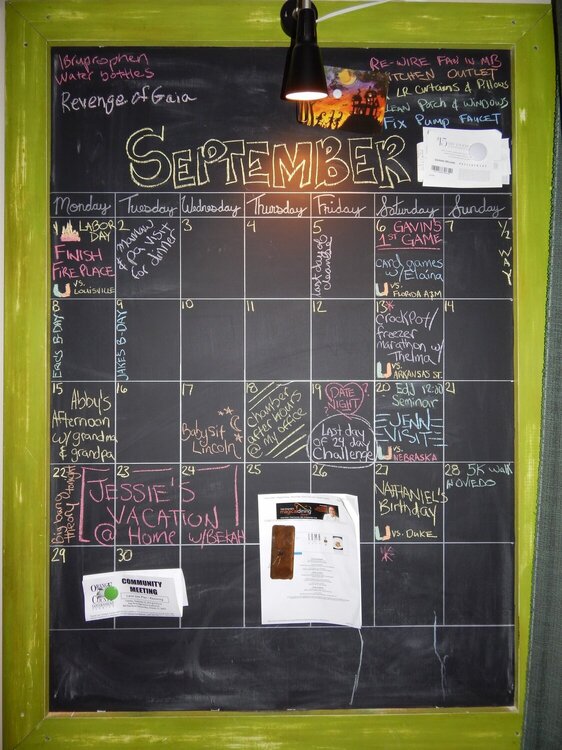 Ibruprophen
Water bottles
Revenge of Gaia
RE-WIRE FAN IN MB
KITCHEN OUTLET
LR Curtains & Pillows
CLEAN Porch & WINDOWS
FIX PUMP FAUCET
SEPTEMBER
Monday Tuesday Wednesday Thursday Friday Saturday Sunday
1
LABOR
DAY
FINISH
FIREPLACE
U VS.
LOUISVILLE
2
& Pa visit
for dinner
3
4
5
Last day of
cleanse
6 GAVIN'S
1ST GAME
CARD GAMES
w/ Elaina
U VS.
FLORIDA A&M
7
1/2
WAY
8
Erics B-DAY
9
JAKES B-DAY
10
11
12
13*
CROCKPOT/
freezer
marathon w/
Thelma!
U VS.
ARKANSAS ST.
14
15
Abby's
Afternoon
w/ grandma
& grandpa
16
17
Babysit
Lincoln
18
chamber
after hours
@ my office
19
DATE
NIGHT
Last day
of 24 day
Challenge
20 Edj 12:00
Seminar
JENN
VISIT
U VS.
NEBRASKA
21
22
Big bang
theory
23
24
JESSIE'S
VACATION
@ Home w/BEKAH
25
26
27
NATHANIEL'S
Birthday
U VS. DUKE
28 5K walk
OVIEDO
29
30
*
magicaldining
LUMA
ORANGE
COUNTY
COMMUNITY
MEETING